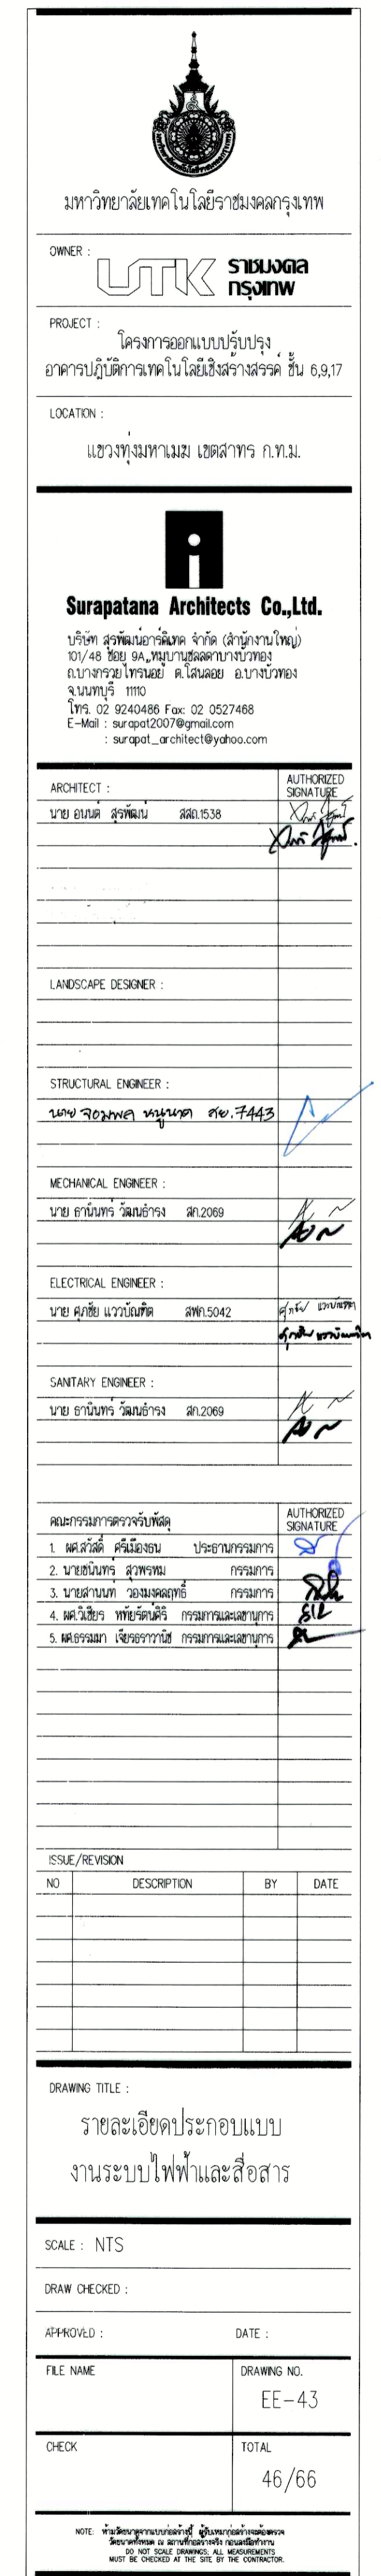 มหาวิทยาลัยเทคโนโลยีราชมงคลกรุงเทพ
OWNER :
UTK ราชมงคล
กรุงเทพ
PROJECT :
โครงการออกแบบปรับปรุง
อาคารปฎิบัติการเทคโนโลยีเชิงสร้างสรรค์ ชั้น 6,9,17
LOCATION :
แขวงทุ่งมหาเมฆ เขตสาทร ก.ท.ม.
Surapatana Architects Co.,Ltd.
บริษัท สุรพัฒน์อาร์คิเทค จำกัด (สำนักงานใหญ่)
101/48 ซอย 9A, หมู่บานชลลดาบางบัวทอง
ถ.บางกรวยไทรน้อย ต.โสนลอย อ.บางบัวทอง
จ.นนทบุรี 11110
โทร. 02 9240486 Fax: 02 0527468
E-Mail : surapat2007@gmail.com
: surapat_architect@yahoo.com
ARCHITECT :
AUTHORIZED
SIGNATURE
นาย อนนต์ สุรพัฒน์ สสถ.1538
LANDSCAPE DESIGNER :
STRUCTURAL ENGINEER :
นาย จอมพล หนูนาค สย.7443
MECHANICAL ENGINEER :
นาย ธานินทร์ วัฒนธำรง สก.2069
ELECTRICAL ENGINEER :
นาย ศุภชัย แววบัณฑิต สฟก.5042
ศุภชัย แววบัณฑิต
ศุภชัย แววบัณฑิต
SANITARY ENGINEER :
นาย ธานินทร์ วัฒนธำรง สก.2069
คณะกรรมการตรวจรับพัสดุ
AUTHORIZED
SIGNATURE
1. ผศ.สวัสดิ์ ศรีเมืองธน ประธานกรรมการ
2. นายชนินทร์ สุวพรหม กรรมการ
3. นายสานนท์ วองมงคลฤทธิ์ กรรมการ
4. ผศ.วิเชียร หทัยรัตน์ศิริ กรรมการและเลขานุการ
5. ผศ.ธรรมมา เจียรธราวานิช กรรมการและเลขานุการ
ISSUE/REVISION
NO DESCRIPTION BY DATE
DRAWING TITLE :
รายละเอียดประกอบแบบ
งานระบบไฟฟ้าและสื่อสาร
SCALE : NTS
DRAW CHECKED :
APPROVED : DATE :
FILE NAME DRAWING NO.
EE-43
CHECK TOTAL
46/66
NOTE: ห้ามวัดขนาดจากแบบก่อสร้างนี้ ผู้รับเหมาก่อสร้างจะต้องตรวจ
วัดขนาดทั้งหมด ณ สถานที่ก่อสร้างจริง ก่อนลงมือทำงาน
DO NOT SCALE DRAWINGS; ALL MEASUREMENTS
MUST BE CHECKED AT THE SITE BY THE CONTRACTOR.